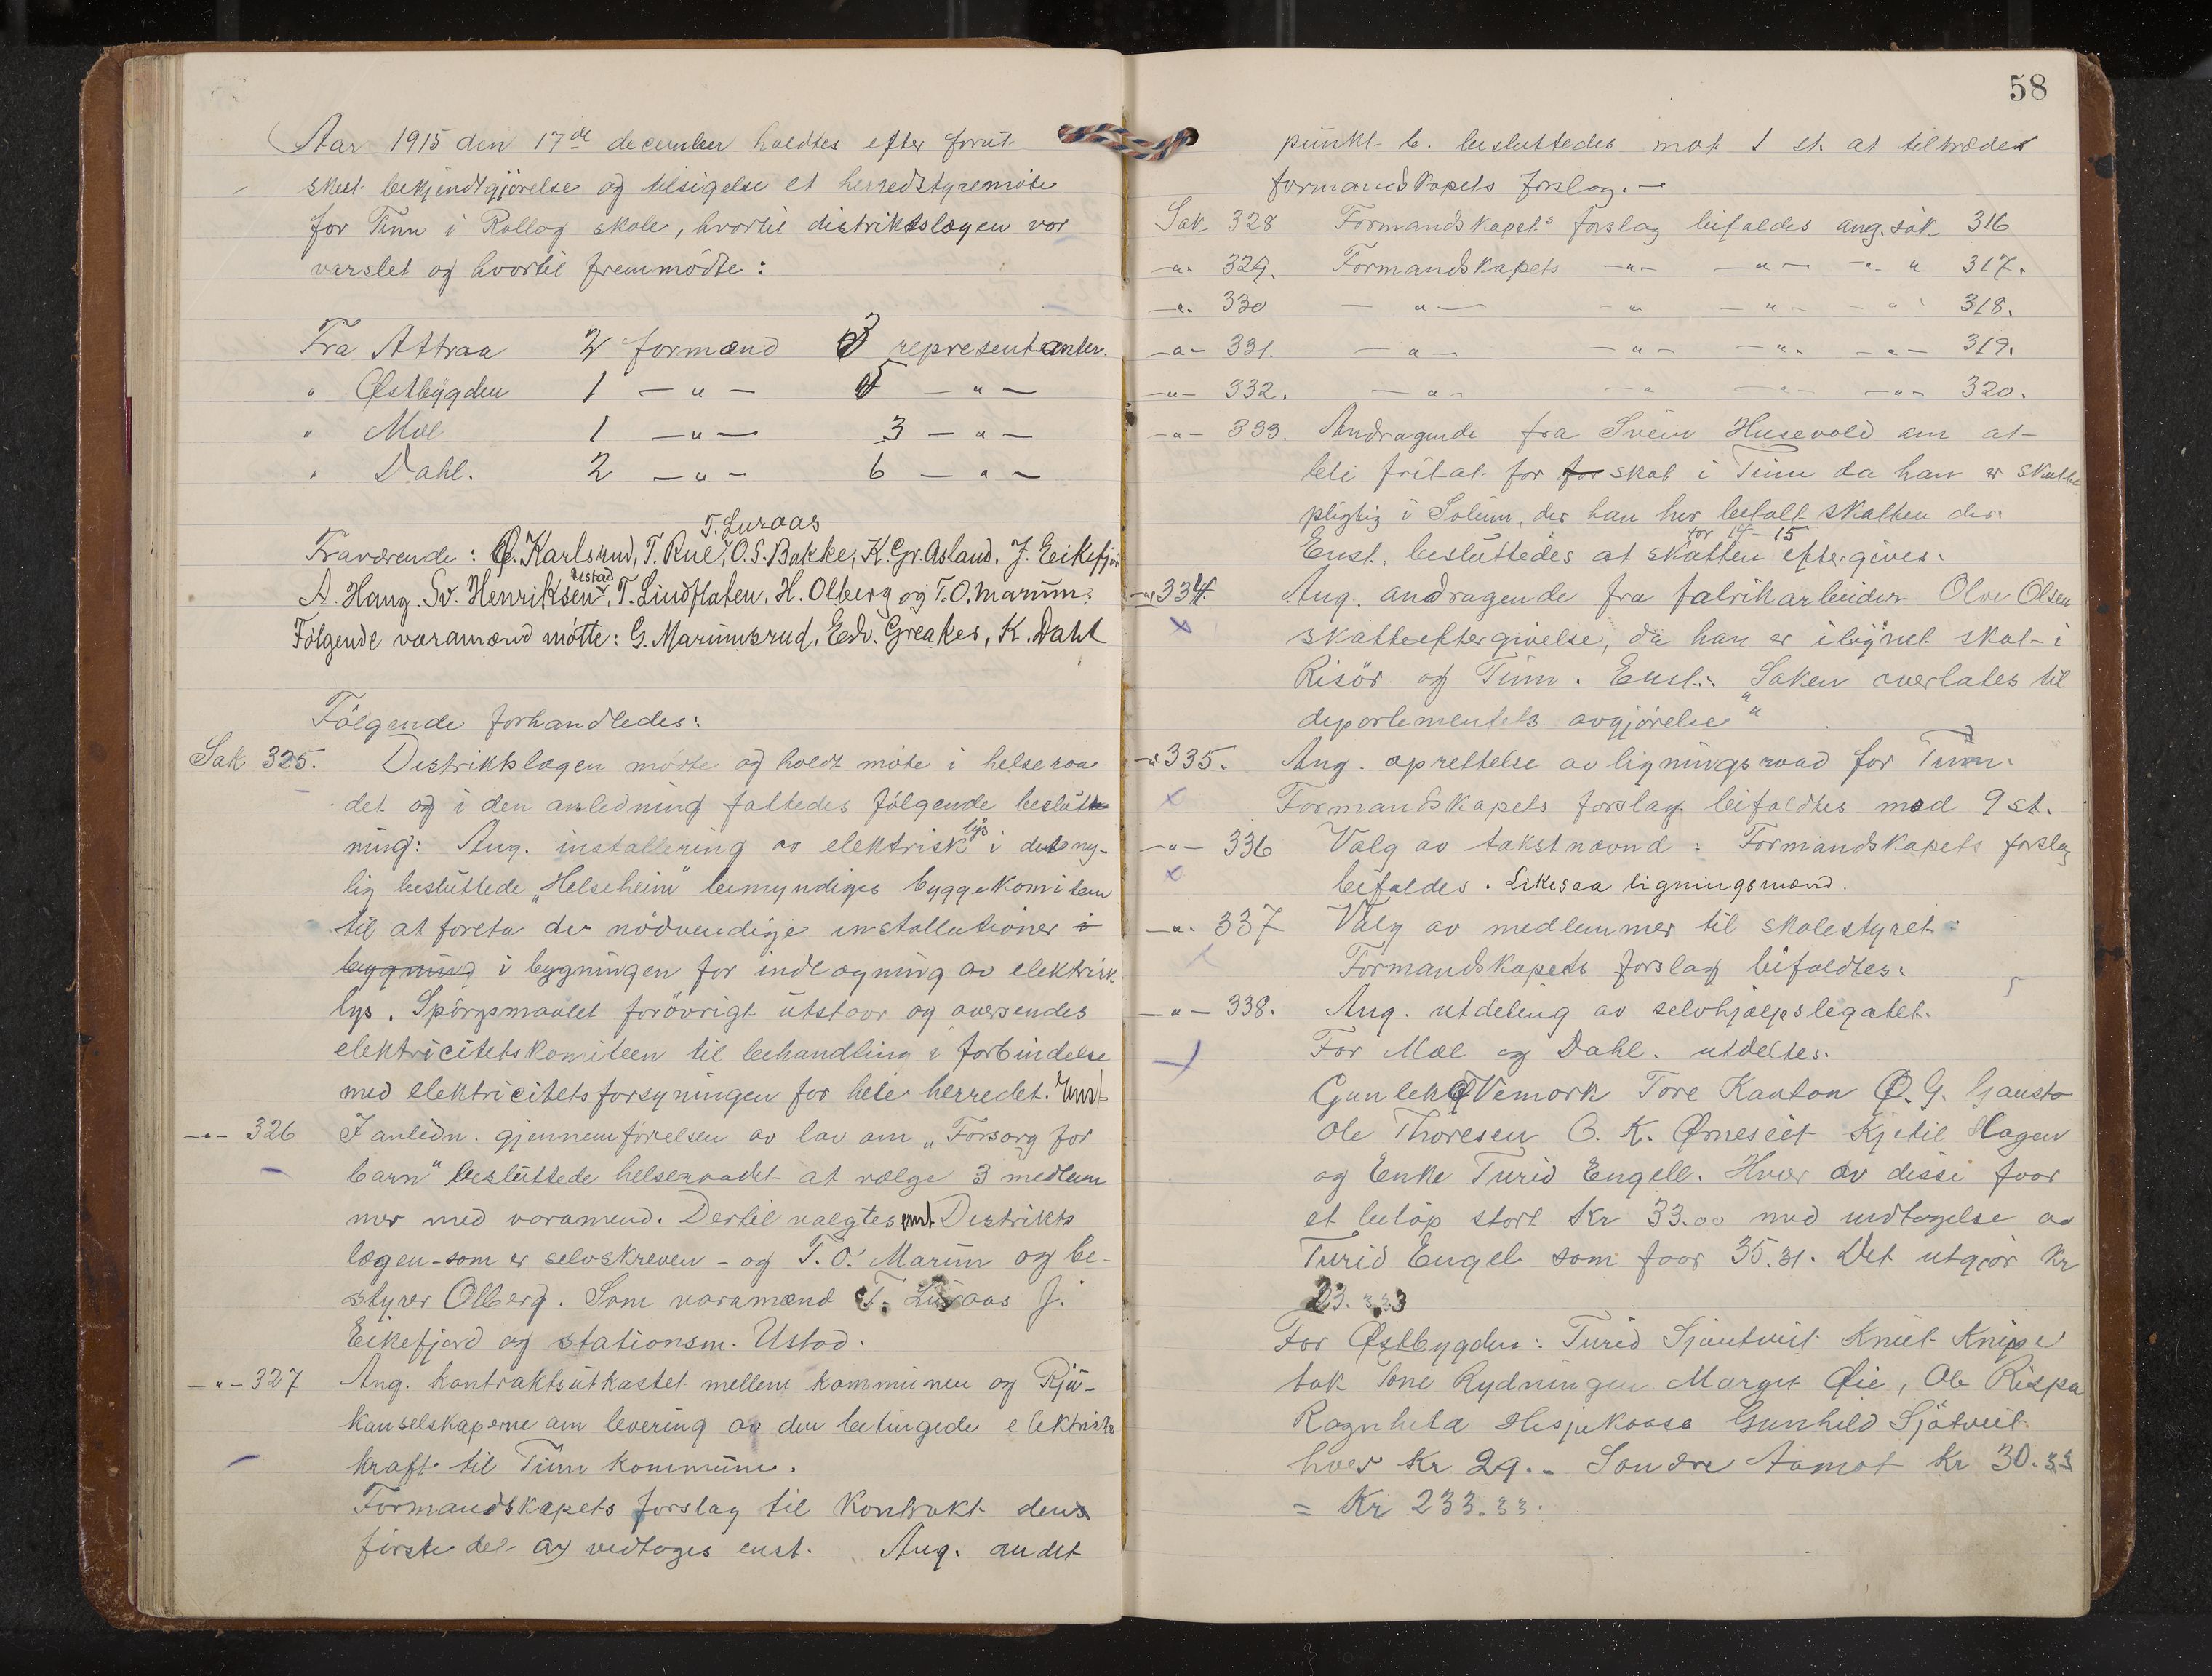 Aar 1915 den 17de december holdtes efter forut-
skeet bekjendtgjørelse og tilsigelse et herredstyremøte
for Tinn i Rollag skole, hvortil distriktslægen var
varslet og hvortil fremmødte:
Fra Attraa 2 formænd 3 representanter.
" Østbygden 1 -"- 5 -"-
" Mæl 1 -"- 3 -"-
" Dahl. 2 -"- 6 -"-
T. Luraas
Fraværende: Ø. Karlsrud, T. Rue, O.S. Bakke, K. Gr. Asland, J. Eikefjor
Ustad
A. Haug. Sv. Henriksen, T. Lindflaten, H. Olberg og T.O. Marum.
Følgende varamænd møtte: G. Marumsrud, Edv. Greaker, K. Dahl
Følgende forhandledes:
Sak 325. Distriktslægen møtte og holdt møte i helseraa
det og i den anledning fattedes følgende beslut
lys
ning: Ang. installering av elektrisk i det ny-
lig besluttede "Helseheim" bemyndiges byggekomiteen
til at foreta de nødvendige installationer i
bygning i bygningen for indlægning av elektrisk
lys. Spørgsmaalet forøvrigt utstaar og oversendes
elektricitetskomiteen til behandling i forbindelse
med elektricitetsforsyningen for hele herredet. Enst
-"- 326 I anledn. gjennemførelsen av lov om "Forsorg for
barn" besluttede helseraadet at vælge 3 medlem
mer med varamænd. Dertil valgtes Distrikts
lægen - som er selvskreven - og T.O. Marum og be-
styrer Olberg. Som varamænd T. Luraas J.
Eikefjord og stationsm. Ustad.
-"- 327 Ang. kontraktsutkastet mellem kommunen og Rju-
kanselskaperne om levering av den betingede elektriske
kraft til Tinn kommune.
Formandskapets forslag til Kontrakt dens
første del a) vedtoges enst. Ang. andet
58
punkt b. besluttedes mot 1 st. at tiltræde
formandskapets forslag. -
Sak 328 Formandskapets forslag bifaldes ang. sak 316
-"- 329. Formandskapets -"- -"- -"- " 317.
-"- 330 -"- -"- -"- -"- 318.
-"- 331. -"- -"- -"- -"- 319.
-"- 332. -"- -"- -"- -"- 320.
-"- 333. Andragende fra Svein Husevold om at
bli fritat for for skat i Tinn da han er skatte
pligtig i Solum, der han har betalt skatten der.
for 14-15
Enst. besluttedes at skatten eftergives.
-"- 334. Ang. andragende fra fabrikarbeider Olve Olsen
skatteeftergivelse, da han er ilignet skat i
Risør og Tinn. Enst: "Saken overlates til
departementets avgjørelse"
-"- 335. Ang. oprettelse av ligningsraad for Tinn.
Formandskapets forslag bifaldtes med 9 st.
-"- 336 Valg av takstnævnd: Formandskapets forslag
bifaldes. Likesaa ligningsmænd.
-"- 337 Valg av medlemmer til skolestyret:
Formandskapets forslag bifaldtes.
-"- 338. Ang. utdeling av selvhjælpslegatet.
For Mæl og Dahl. utdeltes.
Gunleik Vemork Tore Kanton Ø.G. Gausto
Ole Thoresen O.K. Ørneseit Kjetil Hagen
og Enke Turid Engell. Hver av disse faar
et beløp stort Kr 33.00 med undtagelse av
Turid Engel som faar 35.31. Det utgjør Kr
23. 333
For Østbygden: Turid Sjåntveit Knut Knipe
bak Tone Rydningen Margit Øie, Ole Rispa
Ragnhild Hesjukaasa Gunhild Sjøtveit
hver Kr 29.- Sondre Aamot Kr 30.33
= Kr 233.33.